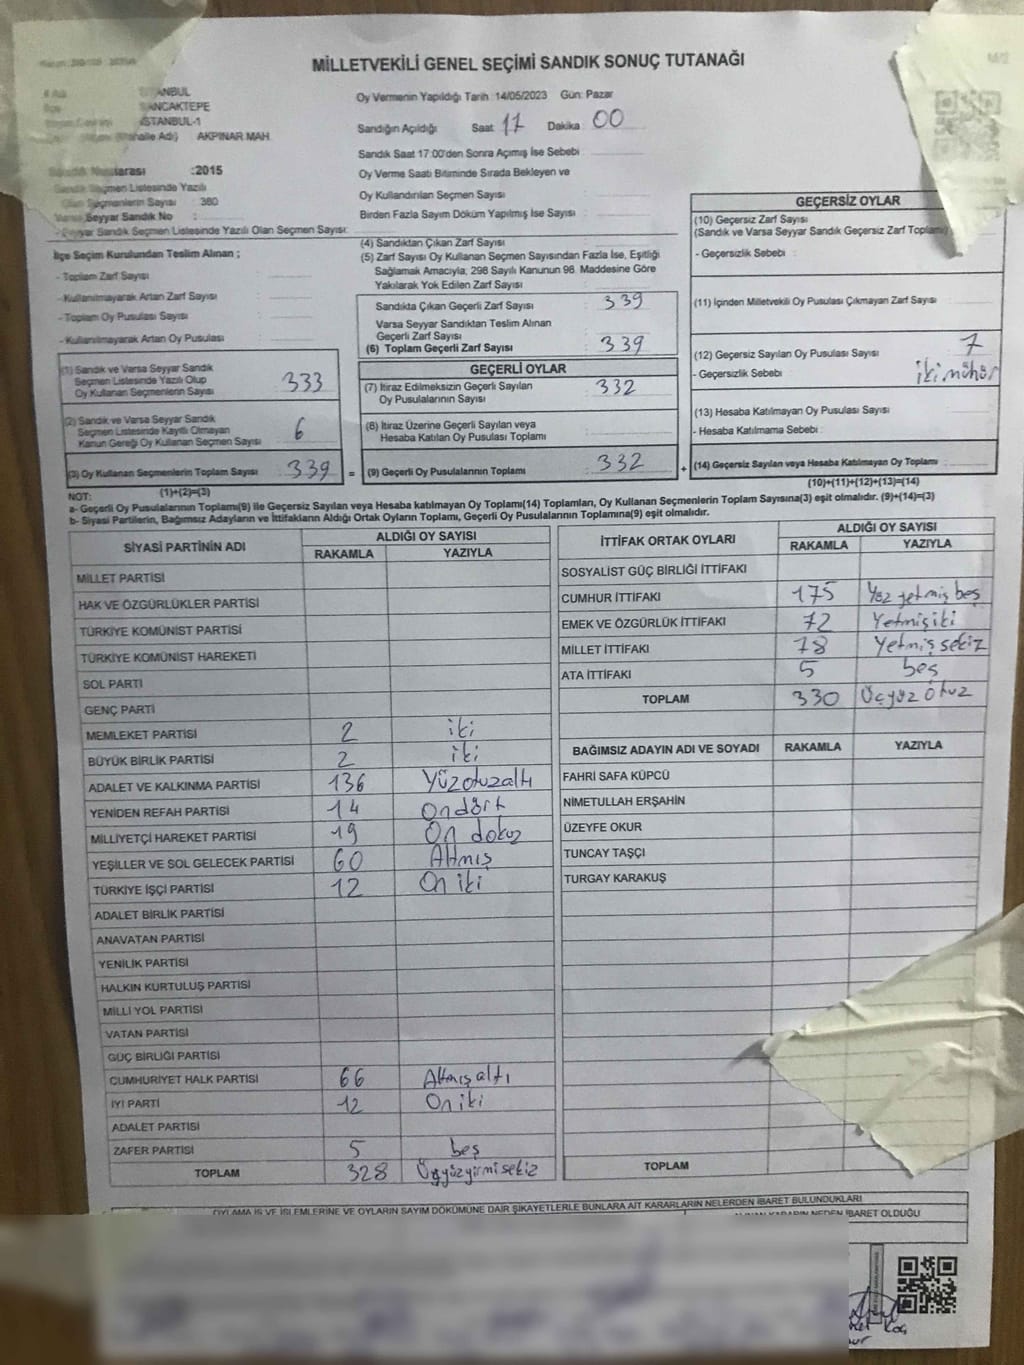 MİLLETVEKİLİ GENEL SEÇİMİ SANDIK SONUÇ TUTANAĞI
Oy Vermenin Yapıldığı Tarih :14/05/2023 Gün: Pazar
Sandığın Açıldığı Saat 17 Dakika 00
Sandık Saat 17:00'den Sonra Açımış İse Sebebi
Oy Verme Saati Bitiminde Sırada Bekleyen ve
Oy Kullandırılan Seçmen Sayısı
Birden Fazla Sayım Döküm Yapılmış İse Sayısı
ANCAKTEPE
STANBUL-1
AKPINAR MAH.
:2015
Seçmen Listesinde Yazılı
Seçmenlerin Sayısı : 360
Seyyar Sandık No :
Seyyar Sandık Seçmen Listesinde Yazılı Olan Seçmen Sayısı:
İlçe Seçim Kurulundan Teslim Alınan ;
- Toplam Zarf Sayısı :
- Kullanılmayarak Artan Zarf Sayısı :
- Toplam Oy Pusulası Sayısı :
- Kullanılmayarak Artan Oy Pusulası :
(1) Sandık ve Varsa Seyyar Sandık
Seçmen Listesinde Yazılı Olup
Oy Kullanan Seçmenlerin Sayısı : 333
(2) Sandık ve Varsa Seyyar Sandık
Seçmen Listesinde Kayıtlı Olmayan
Kanun Gereği Oy Kullanan Seçmen Sayısı : 6
(3) Oy Kullanan Seçmenlerin Toplam Sayısı : 339 =
(1)+(2)=(3)
(4) Sandıktan Çıkan Zarf Sayısı
(5) Zarf Sayısı Oy Kullanan Seçmen Sayısından Fazla İse, Eşitliği
Sağlamak Amacıyla, 298 Sayılı Kanunun 98. Maddesine Göre
Yakılarak Yok Edilen Zarf Sayısı :
Sandıkta Çıkan Geçerli Zarf Sayısı : 339
Varsa Seyyar Sandıktan Teslim Alınan
Geçerli Zarf Sayısı
(6) Toplam Geçerli Zarf Sayısı : 339
GEÇERLİ OYLAR
(7) İtiraz Edilmeksizin Geçerli Sayılan : 332
Oy Pusulalarının Sayısı
(8) İtiraz Üzerine Geçerli Sayılan veya
Hesaba Katılan Oy Pusulası Toplamı :
(9) Geçerli Oy Pusulalarının Toplamı : 332 +
GEÇERSİZ OYLAR
(10) Geçersiz Zarf Sayısı
(Sandık ve Varsa Seyyar Sandık Geçersiz Zarf Toplamı)
- Geçersizlik Sebebi :
(11) İçinden Milletvekili Oy Pusulası Çıkmayan Zarf Sayısı :
(12) Geçersiz Sayılan Oy Pusulası Sayısı : 7
- Geçersizlik Sebebi : iki mühür
(13) Hesaba Katılmayan Oy Pusulası Sayısı :
- Hesaba Katılmama Sebebi :
(14) Geçersiz Sayılan veya Hesaba Katılmayan Oy Toplamı :
(10)+(11)+(12)+(13)=(14)
NOT:
a- Geçerli Oy Pusulalarının Toplamı(9) ile Geçersiz Sayılan veya Hesaba katılmayan Oy Toplamı(14) Toplamları, Oy Kullanan Seçmenlerin Toplam Sayısına(3) eşit olmalıdır. (9)+(14)=(3)
b- Siyasi Partilerin, Bağımsız Adayların ve İttifakların Aldığı Ortak Oyların Toplamı, Geçerli Oy Pusulalarının Toplamına(9) eşit olmalıdır.
SİYASİ PARTİNİN ADI
ALDIĞI OY SAYISI
RAKAMLA YAZIYLA
MİLLET PARTİSİ
HAK VE ÖZGÜRLÜKLER PARTİSİ
TÜRKİYE KOMÜNİST PARTİSİ
TÜRKİYE KOMÜNİST HAREKETİ
SOL PARTİ
GENÇ PARTİ
MEMLEKET PARTİSİ 2 iki
BÜYÜK BİRLİK PARTİSİ 2 iki
ADALET VE KALKINMA PARTİSİ 136 Yüzotuzaltı
YENİDEN REFAH PARTİSİ 14 Ondört
MİLLİYETÇİ HAREKET PARTİSİ 19 On dokuz
YEŞİLLER VE SOL GELECEK PARTİSİ 60 Altmış
TÜRKİYE İŞÇİ PARTİSİ 12 On iki
ADALET BİRLİK PARTİSİ
ANAVATAN PARTİSİ
YENİLİK PARTİSİ
HALKIN KURTULUŞ PARTİSİ
MİLLİ YOL PARTİSİ
VATAN PARTİSİ
GÜÇ BİRLİĞİ PARTİSİ
CUMHURİYET HALK PARTİSİ 66 Altmışaltı
İYİ PARTİ 12 Oniki
ADALET PARTİSİ
ZAFER PARTİSİ 5 beş
TOPLAM 328 Üçyüzyirmisekiz
İTTİFAK ORTAK OYLARI
ALDIĞI OY SAYISI
RAKAMLA YAZIYLA
SOSYALİST GÜÇ BİRLİĞİ İTTİFAKI
CUMHUR İTTİFAKI 175 Yüz yetmiş beş
EMEK VE ÖZGÜRLÜK İTTİFAKI 72 Yetmişiki
MİLLET İTTİFAKI 78 Yetmiş sekiz
ATA İTTİFAKI 5 beş
TOPLAM 330 Üçyüz otuz
BAĞIMSIZ ADAYIN ADI VE SOYADI RAKAMLA YAZIYLA
FAHRİ SAFA KÜPCÜ
NİMETULLAH ERŞAHİN
ÜZEYFE OKUR
TUNCAY TAŞÇI
TURGAY KARAKUŞ
TOPLAM
OYLAMA İŞ VE İŞLEMLERİNE VE OYLARIN SAYIM DÖKÜMÜNE DAİR ŞİKAYETLERLE BUNLARA AİT KARARLARIN NELERDEN İBARET BULUNDUKLARI
İBARET OLDUĞU